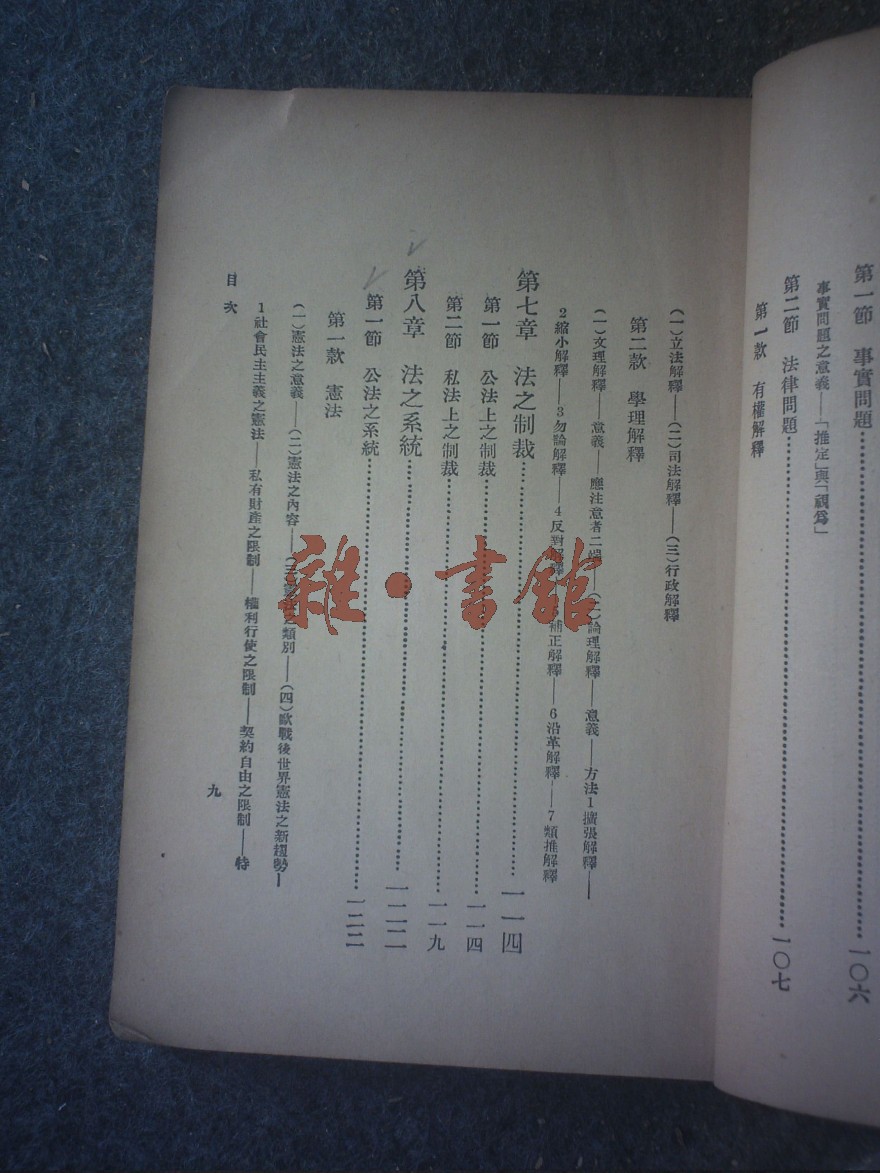 第一節　事實問題……一〇六
事實問題之意義——「推定」與「視爲」
第二節　法律問題……一〇七
第一款　有權解釋
（一）立法解釋——（二）司法解釋——（三）行政解釋
第二款　學理解釋
（一）文理解釋——意義——應注意者二端——（二）論理解釋——意義——方法1擴張解釋——
2縮小解釋——3勿論解釋——4反對解釋——補正解釋——6沿革解釋——7類推解釋
第七章　法之制裁……一一四
第一節　公法上之制裁……一一四
第二節　私法上之制裁……一一九
第八章　法之系統……一二二
第一節　公法之系統……一二二
第一款　憲法
（一）憲法之意義——（二）憲法之內容——（三）憲法之類別——（四）歐戰後世界憲法之新趨勢—
1社會民主主義之憲法——私有財產之限制——權利行使之限制——契約自由之限制——特
目次
九
雜·書館